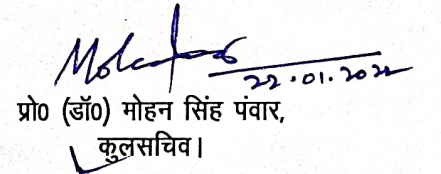 22.01.2022
प्रो० (डॉ०) मोहन सिंह पंवार,
कुलसचिव।